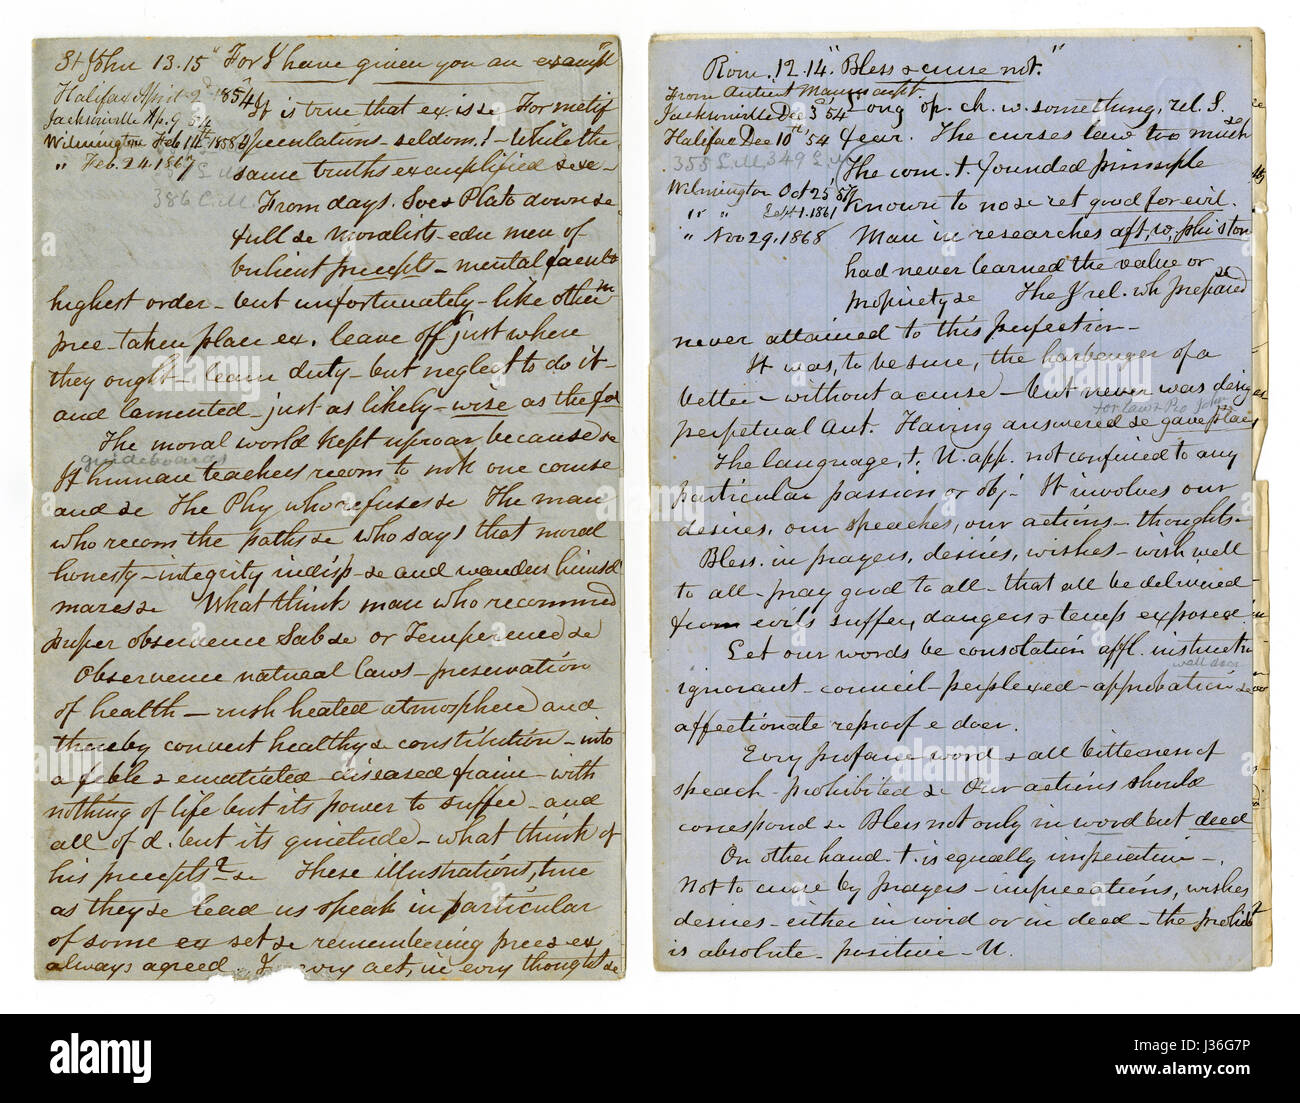 St John 13.15 "For I have given you an example"
Halifax April 2d 1854
It is true that ex. is &c For metif
Jacksonville Ap. 9 54
Wilmington Feb 14th 1858
speculations - seldom! - While the
" Feb. 24. 1867
same truths exemplified &c -
386 C.M.
From days. Soc & Plato down &c
full &c moralists - edu men of
precepts - mental facult
highest order - but unfortunately - like other
pre - taken place ex. leave off just where
they ought - learn duty - but neglect to do it -
and lamented - just as likely - wise as the fox
The moral world kept uproar because &c
guideboards
If human teachers recom to mk one course
and &c The Phy who refuses &c The man
who recom the paths &c who says that moral
honesty - integrity indisp - &c and wanders himself
mazes &c What think man who recommed
super observence Sab &c or Temperence &c
Observence natural laws - preservation
of health - rush heated atmosphere and
thereby convert healthy &c constitution - into
a feble & emaciated diseased frame - with
nothing of life but its power to suffer - and
all of d. but its quietude - what think of
his precepts? &c These illustrations, true
as they &c lead us speak in particular
of some ex set &c remembering prec & ex
always agreed In every act, in every thought &c
Rom. 12.14. "Bless & curse not."
From Autient Manuscript.
Jacksonville Dec 3d 54
Long op. ch. w. something, rel. S.
Halifax Dec 10th 54
fear. The curses law too much &c
355 L.M. 349 L.M.
The com. t. founded principle
Wilmington Oct 25 57
known to no &c ret good for evil.
" " Sept. 1. 1861
" Nov 29, 1868
Man in researches aft, w, phi ston
had never learned the value or
propriety &c The J rel. wh prepared
never attained to this perfection -
It was, to be sure, the harbenger of a
better - without a curse - but never was desig
for law & Pro John
perpetual Aut. Having answered &c gave place
The language, t. U. app. not confined to any
particular passion or obj - It involves our
desires, our speaches, our actions - thoughts -
Bless. in prayers, desires, wishes - wish well
to all - pray good to all - that all be delivered -
from evils suffer, dangers & temp exposed.
Let our words be consolation affl. instructn
well doer
ignorant - council - perplexed - approbation &c
affectionate reproof e doer.
Evry profane word & all bitterness of
speach - prohibited &c Our actions should
correspond &c Bless not only in word but deed
On other hand. t. is equally imperative -
Not to curse by prayers - imprecations, wishes
desires - either in word or in deed - the prohibt
is absolute - positive - U.
alamy
Image ID: J36G7P
www.alamy.com